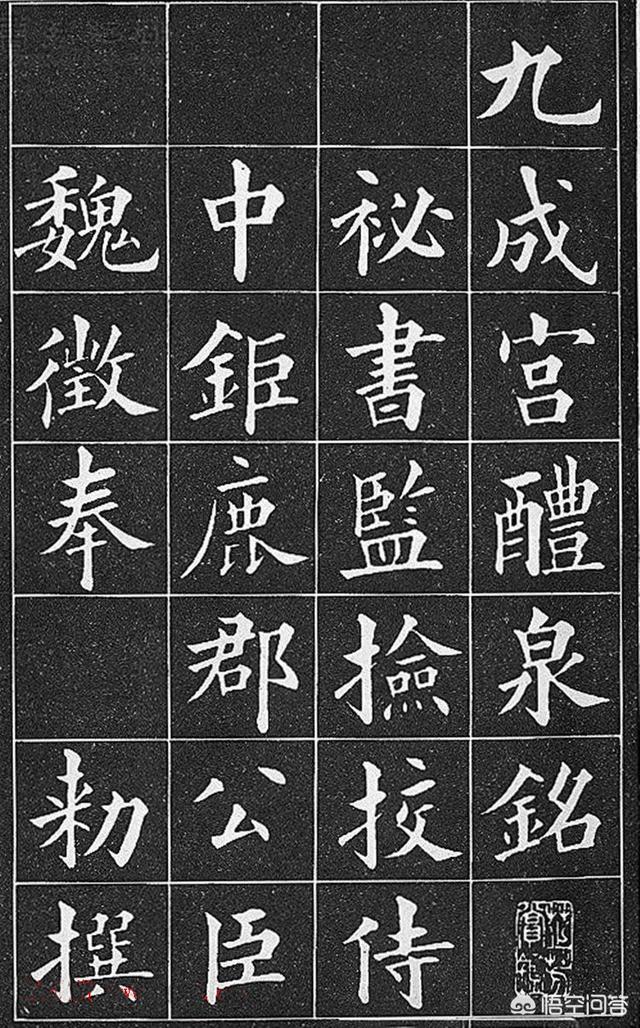 九成宫醴泉銘
祕書監撿挍侍
中鉅鹿郡公臣
魏徵奉 勅撰
悟空问答